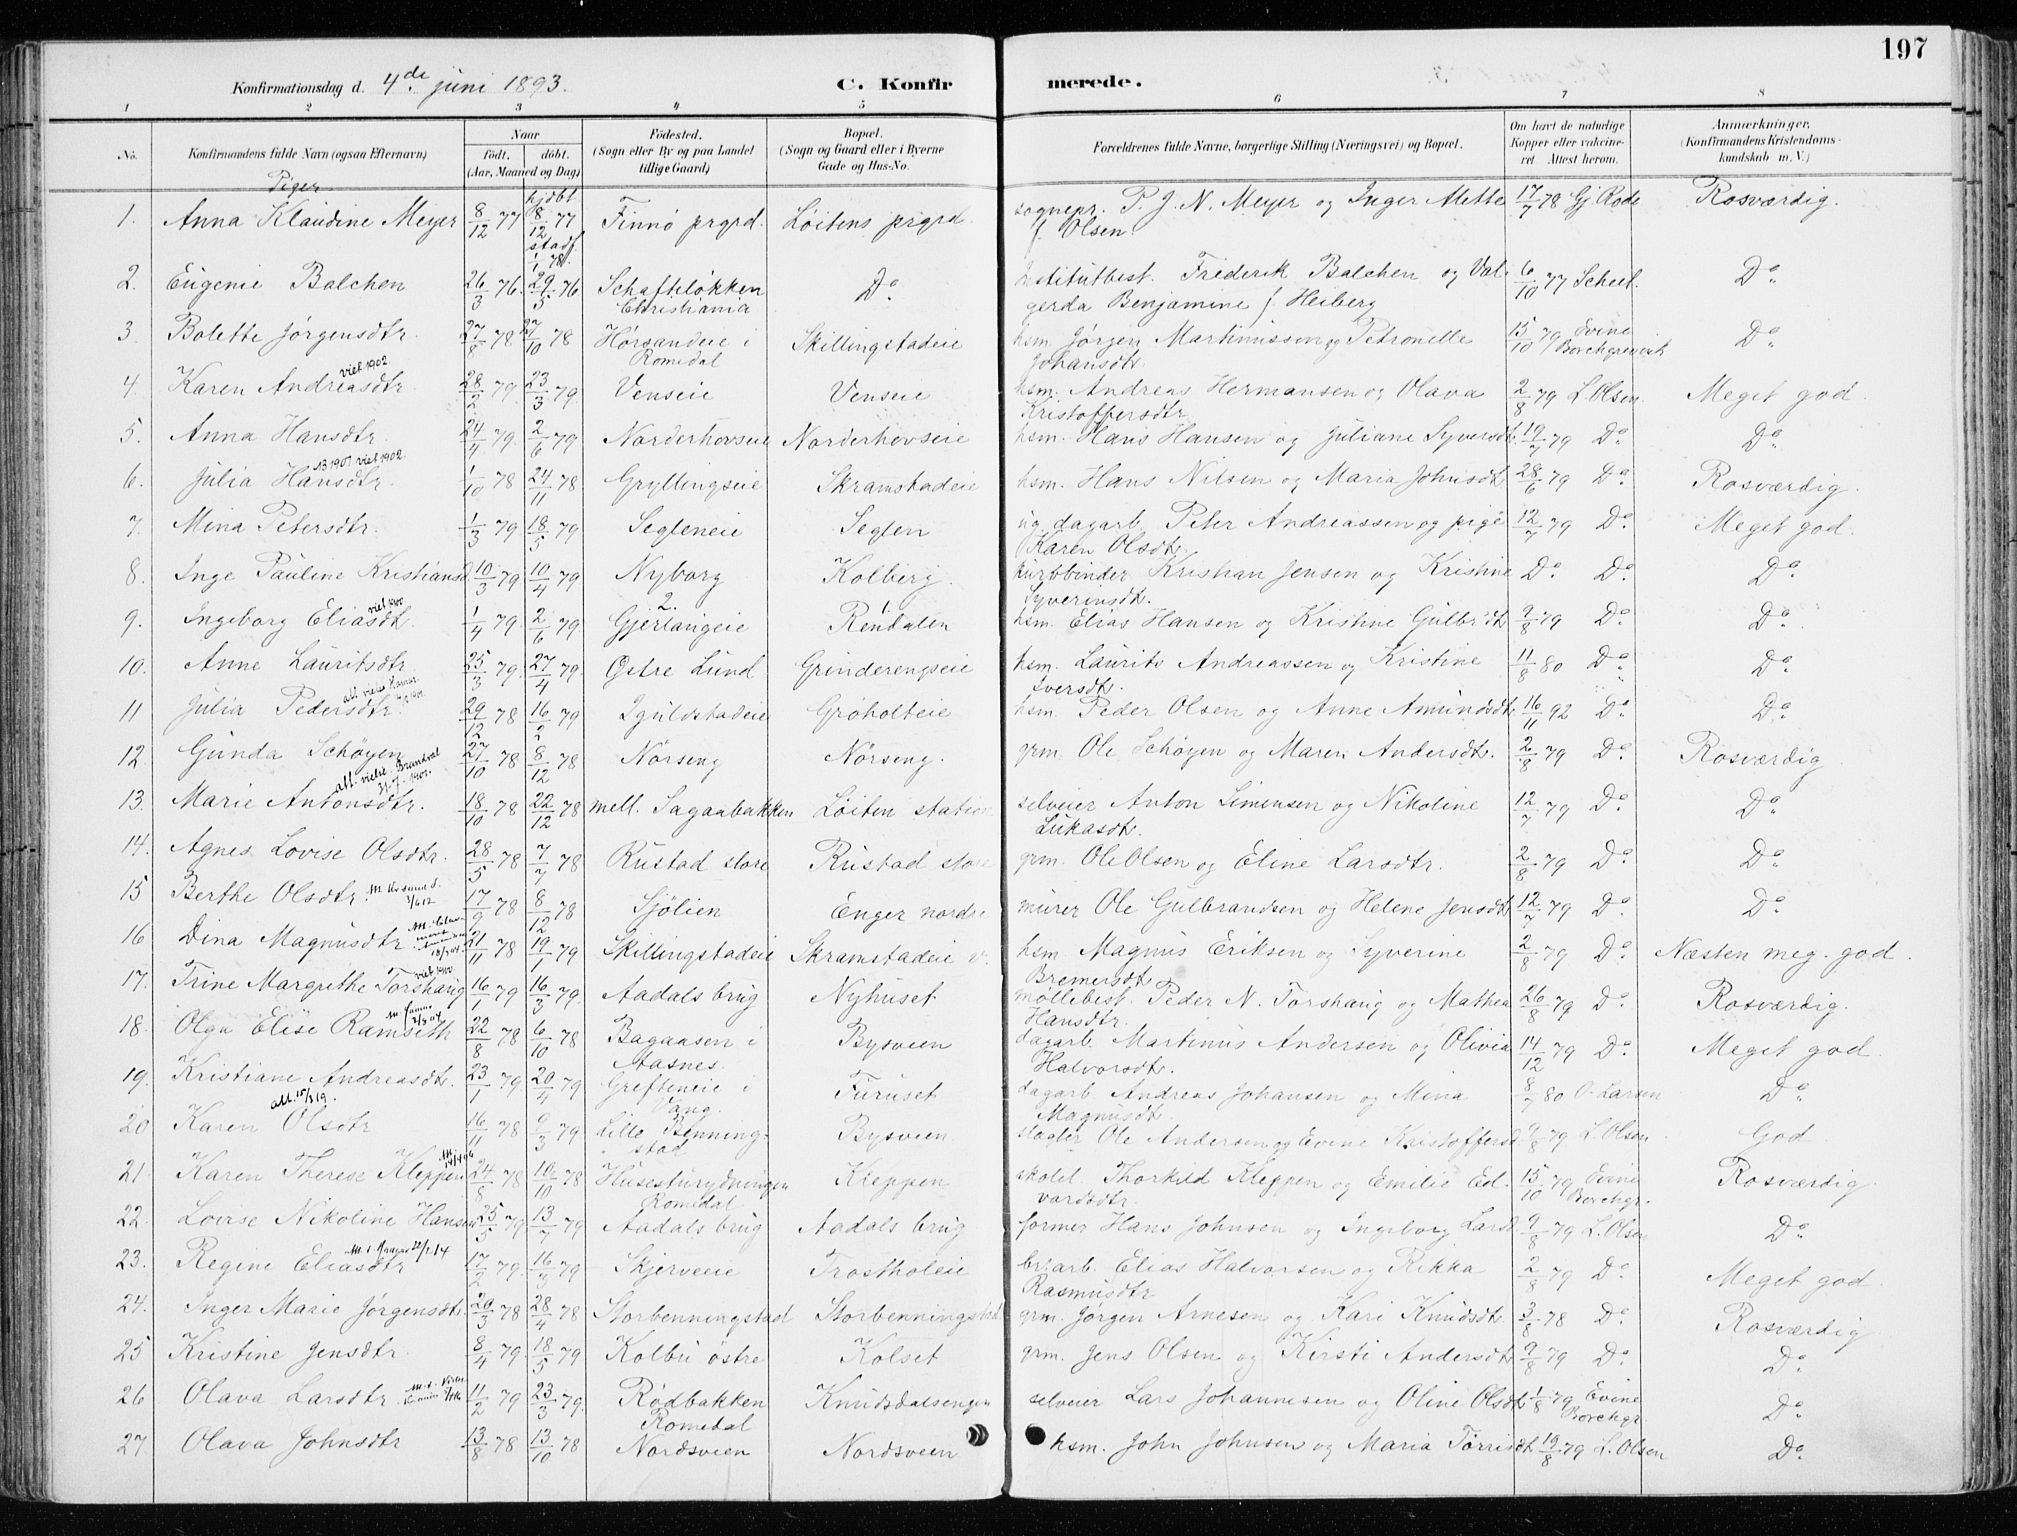 197
Konfirmationsdag d. 4de juni 1893.
C. Konfirmerede.
1 2 3 4 5 6 7 8
No. Konfirmandens fulde Navn (ogsaa Efternavn) Naar født. døbt. (Aar, Maaned og Dag) Fødested. (Sogn eller By og paa Landet tillige Gaard) Bopæl. (Sogn og Gaard eller i Byerne Gade og Hus-No. Forældrenes fulde Navne, borgerlige Stilling (Næringsvei) og Bopæl. Om havt de naturlige Kopper eller vakcineret Attest herom. Anmærkninger. (Konfirmandens Kristendomskundskab m. V.)
Piger
1. Anna Klaudine Meyer 8/12 77 hjdbt 8/12 77 stadf. 1/1 78. Finnø prgrd. Løitens prgrd. sognepr. P. J. N. Meyer og Inger Mette f. Olsen. 17/7 78 Gj. Rode Rosværdig.
2. Eugenie Balchen 26/3 76. 29/5 76 Schafteløkken Christiania Do institutbest. Frederik Balchen og Valgerda Benjamine f. Heiberg 6/10 77 Scheel. Do
3 Bolette Jørgensdtr. 27/8 78 27/10 78 Hørsandeie i Romedal Skillingstadeie hsm. Jørgen Martinussen og Petronelle Johansdtr. 15/10 79 Evine Borchgrevink Do
4 Karen Andreasdtr. viet 1902 28/2 79. 23/3 79. Venseie Venseie hsm. Andreas Hermansen og Olava Kristoffersdtr. 2/8 79 L. Olsen Meget god.
5. Anna Hansdtr 24/4 79. 2/6 79 Norderhovseie Norderhovseie hsm. Hans Hansen og Juliane Syversdtr 19/7 79 Do Do
6. Julia Hansdtr. viet 1902. 1/10 78 24/11 78 Gryllingseie Skramstadeie hsm. Hans Nilsen og Maria Johnsdtr 28/6 79 Do Rosværdig.
7. Mina Petersdtr. 1/3 79 18/5 79 Segleneie Seglen ug. dagarb. Peter Andreassen og pige Karen Olsdtr. 12/7 79 Do Meget god.
8. Inge Pauline Kristiansd. 10/3 79 10/4 79 Nyborg Kolberg. kurvbinder Kristian Jensen og Kristine Syverinsdtr. Do Do Do
9. Ingeborg Eliasdtr. viet 1900 1/4 79. 2/6 79 Gjerlangeie Rendalen hsm. Elias Hansen og Kristine Gulbrdtr 9/8 79 Do Do
10. Anne Lauritsdtr. 25/3 79. 27/4 79. Østre Lund Grinderengseie hsm. Laurits Andreassen og Kristine Iversdtr. 11/8 80 Do Do
11 Julia Pedersdtr 29/12 78 16/2 79 Iguldstadeie Groholteie hsm. Peder Olsen og Anne Amundsdtr. 16/11 92 Do Do
12. Gunda Schøyen 27/10 78 8/12 78 Nørseng Nørseng. grm. Ole Schøyen og Maren Andersdtr. 2/8 79 Do Rosværdig
13. Marie Antonsdtr. att. vielse Brandval 1902. 18/10 78 22/12 78 mell. Sagaabakken Løiten station selveier Anton Simensen og Nikoline Lukasdtr. 12/7 79 Do Do
14. Agnes Lovise Olsdtr. 28/5 78 7/7 78 Rustad store Rustad store grm. Ole Olsen og Eline Larsdtr. 2/8 79 Do Do
15 Berthe Olsdtr. 17/9 78 8/12 78 Sjølien Enger nordre murer Ole Gulbrandsen og Helene Jensdtr 12/7 79 Do Do
16 Dina Magnusdtr 21/11 78 19/1 79 Skillingstadeie Skramstadeie v. hsm. Magnus Eriksen og Syverine Bremersdtr 2/8 79 Do Næsten meg. god.
17. Trine Margrethe Torshaug viet 1900 16/1 79 16/3 79. Aadals brug Nyhuset møllebest. Peder N. Torshaug og Mathea Hansdtr. 26/8 79 Do Rosværdig.
18. Olga Elise Ramseth 22/8 78 6/10 78 Bagaasen i Aasnes. Bysveen dagarb. Martinus Andersen og Olivia Halvorsdtr. 14/12 79 Do Meget god
19. Kristiane Andreasdtr. 23/1 79 20/4 79 Grefteneie i Vang. Furuset dagarb. Andreas Johansen og Mina Magnusdtr. 8/7 80 O. Larsen Do
20 Karen Olsdtr att. 15/3 19. 16/11 78 9/3 79 Lille Benningstad Bysveen slagter Ole Andersen og Evine Kristoffersd. 9/8 79 L. Olsen God
21 Karen Therese Kleppen 24/8 78 10/10 78 Husesturydningen Romedal Kleppen skolel. Thorkild Kleppen og Emilie Edvardsdtr. 15/10 79 Evine Borchgr. Rosværdig
22. Lovise Nikoline Hansen 25/5 79 13/7 79 Aadals brug Aadals brug former Hans Johnsen og Ingeborg Larsd. 9/8 79 L. Olsen Do
23. Regine Eliasdtr 17/2 79. 16/3 79 Skjerveie Trostholeie br.arb. Elias Halvorsen og Rikka Rasmusdtr 2/8 79 Do Meget god.
24. Inger Marie Jørgensdtr. 20/3 78 28/4 78 Storbenningstad Storbenningstad grm. Jørgen Arnesen og Kari Knudsdtr. 3/8 78 Do Rosværdig
25 Kristine Jensdtr. 8/4 79. 18/5 79 Kolbu østre Kolset grm. Jens Olsen og Kirsti Andersdtr 9/8 79 Do Do
26 Olava Larsdtr 11/2 79 23/3 79. Rødbakken Romedal Knudsdalsengen selveier Lars Johannesen og Oline Olsdtr 1/8 79 Evine Borchgr. Do
27 Olava Johnsdtr 13/8 78 13/10 78 Nordsveen Nordsveen hsm. John Johnsen og Maria Torrisdt. 19/8 79 L. Olsen Do